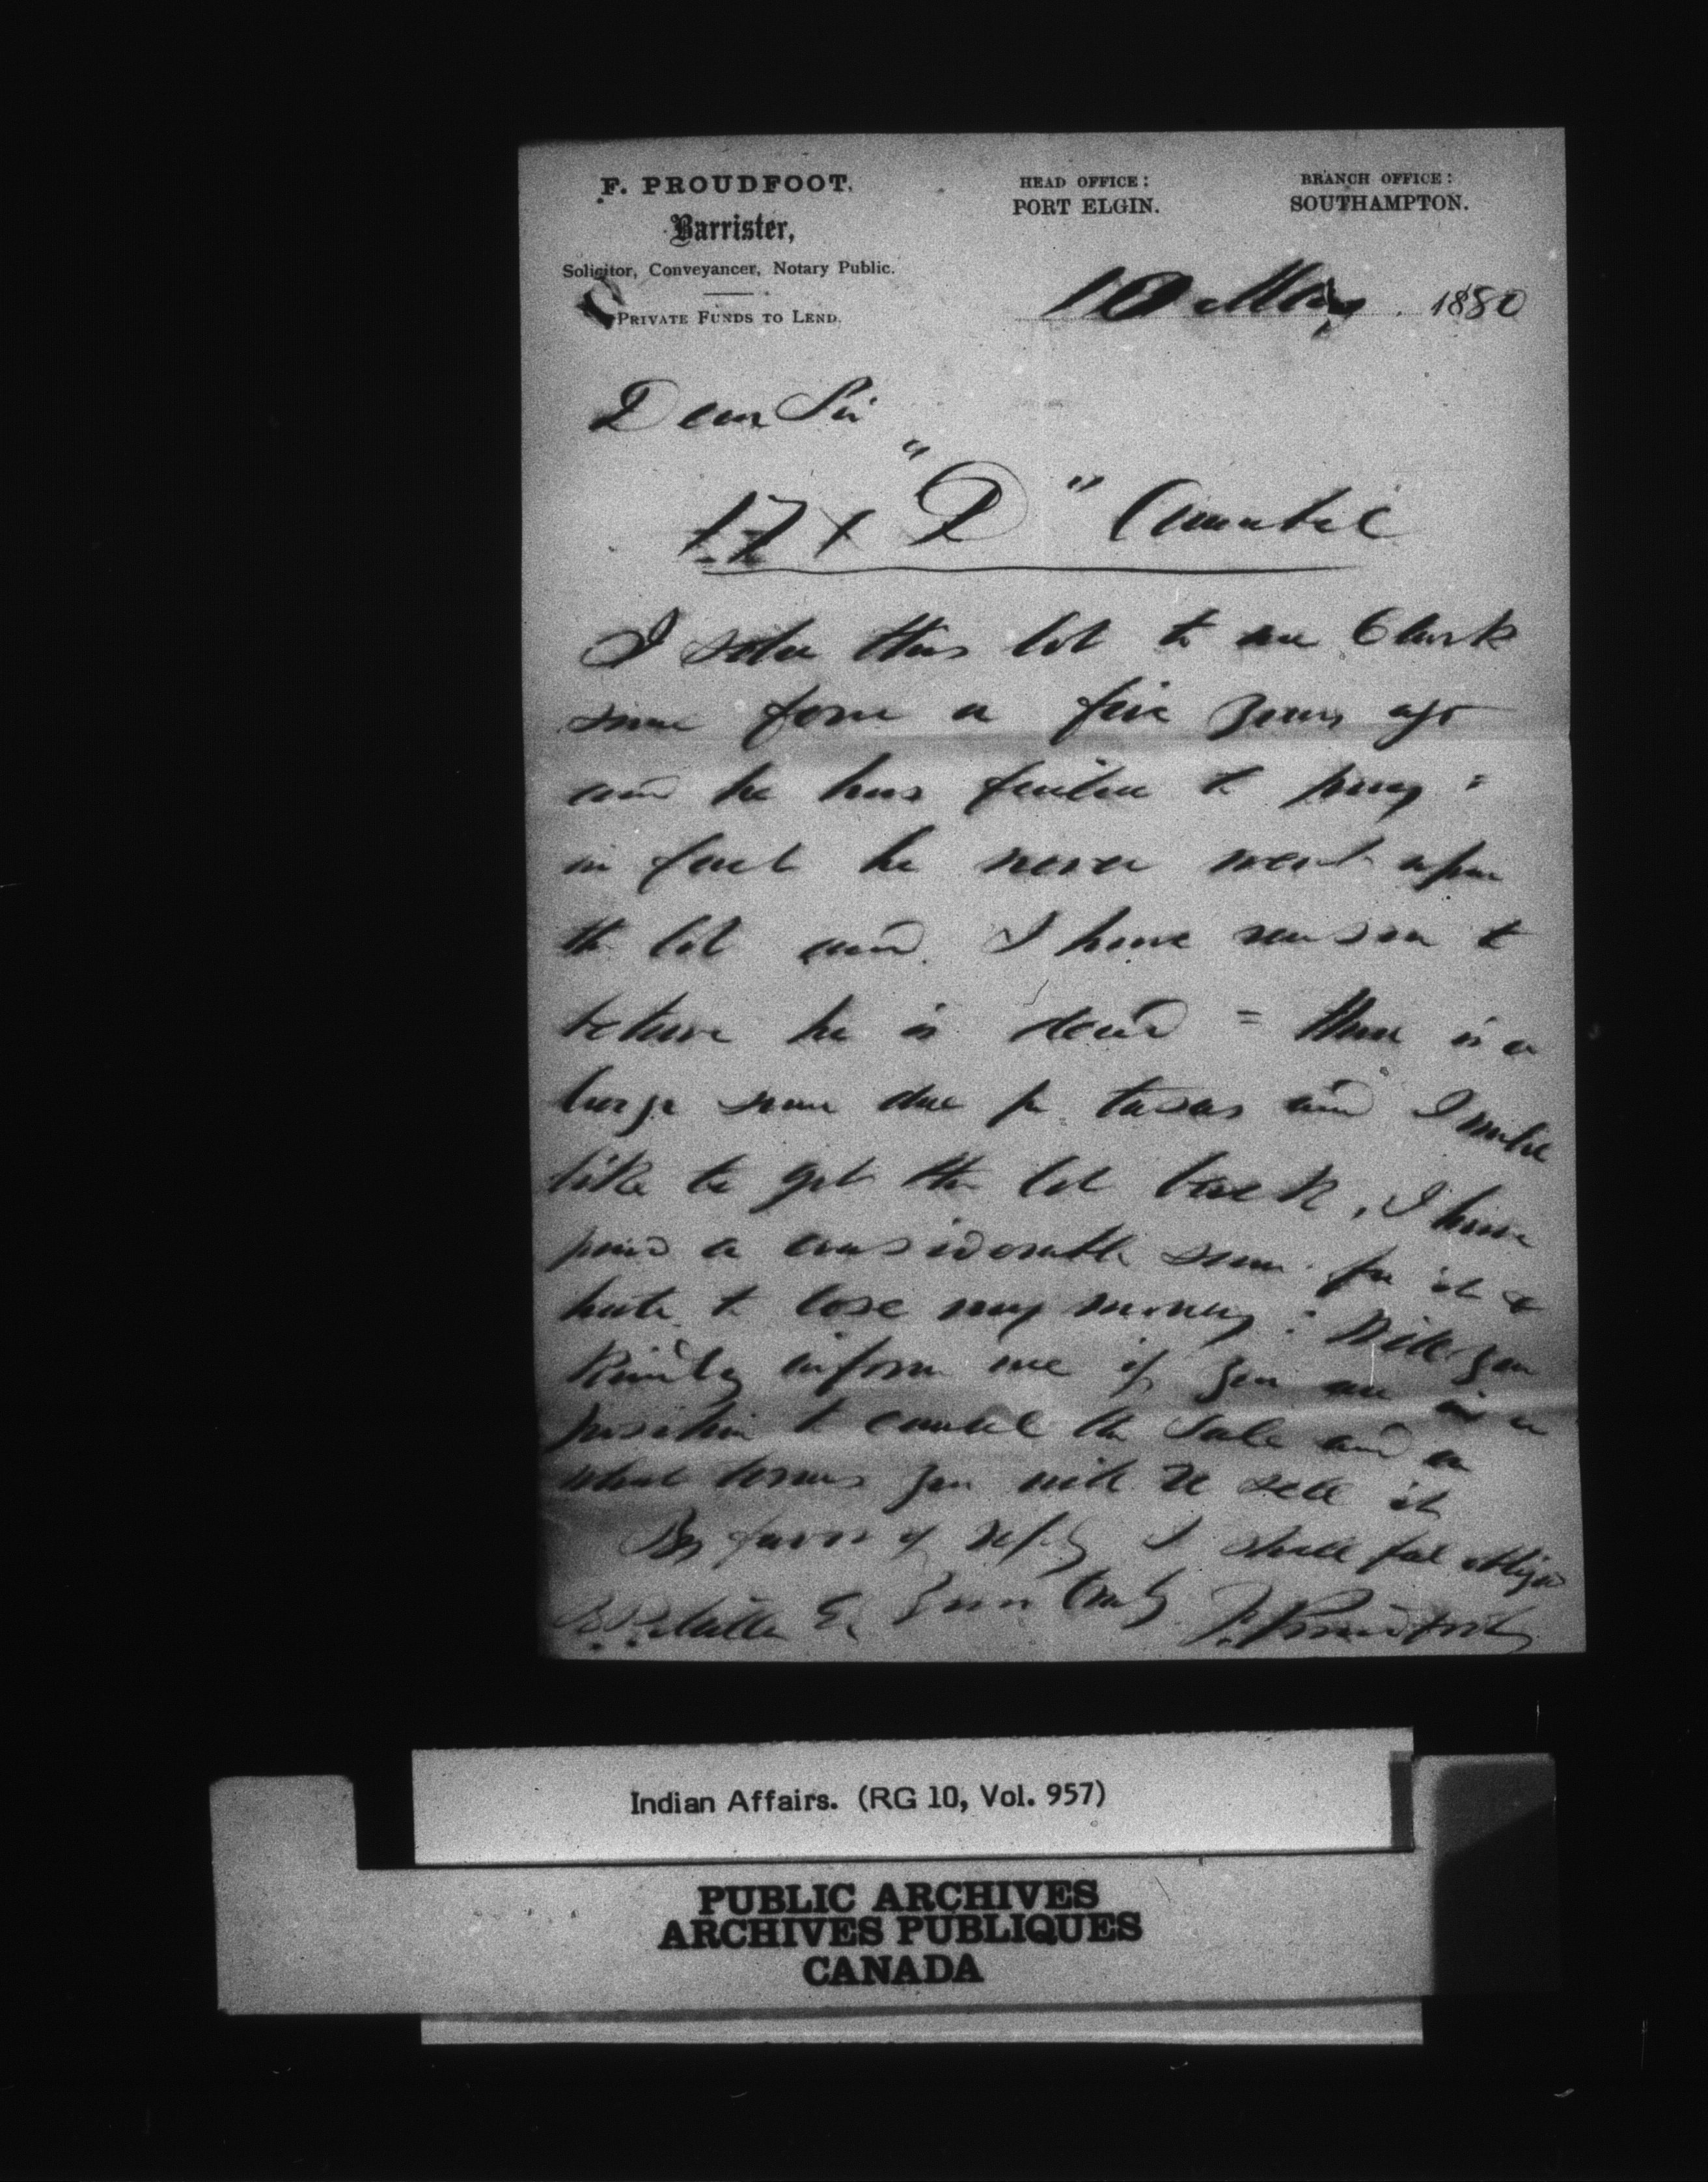 F. PROUDFOOT,
Barrister,
Solicitor, Conveyancer, Notary Public.
PRIVATE FUNDS TO LEND.
HEAD OFFICE:
PORT ELGIN.
BRANCH OFFICE:
SOUTHAMPTON.
10 May 1880
Dear Sir
17 + "D" Amabel
I sold this lot to one Clark
some four or five years ago
and he has failed to pay =
in fact he never went upon
the lot and I have reason to
believe he is dead = there is a
large sum due for taxes and I would
like to get the lot back, I have
paid a considerable sum for it &
hate to lose my money: Will you
kindly inform me if you are in a
position to cancel the sale and on
what terms you will re sell it
By favor of reply I shall feel obliged
Yours truly F. Proudfoot
Indian Affairs. (RG 10, Vol. 957)
PUBLIC ARCHIVES
ARCHIVES PUBLIQUES
CANADA